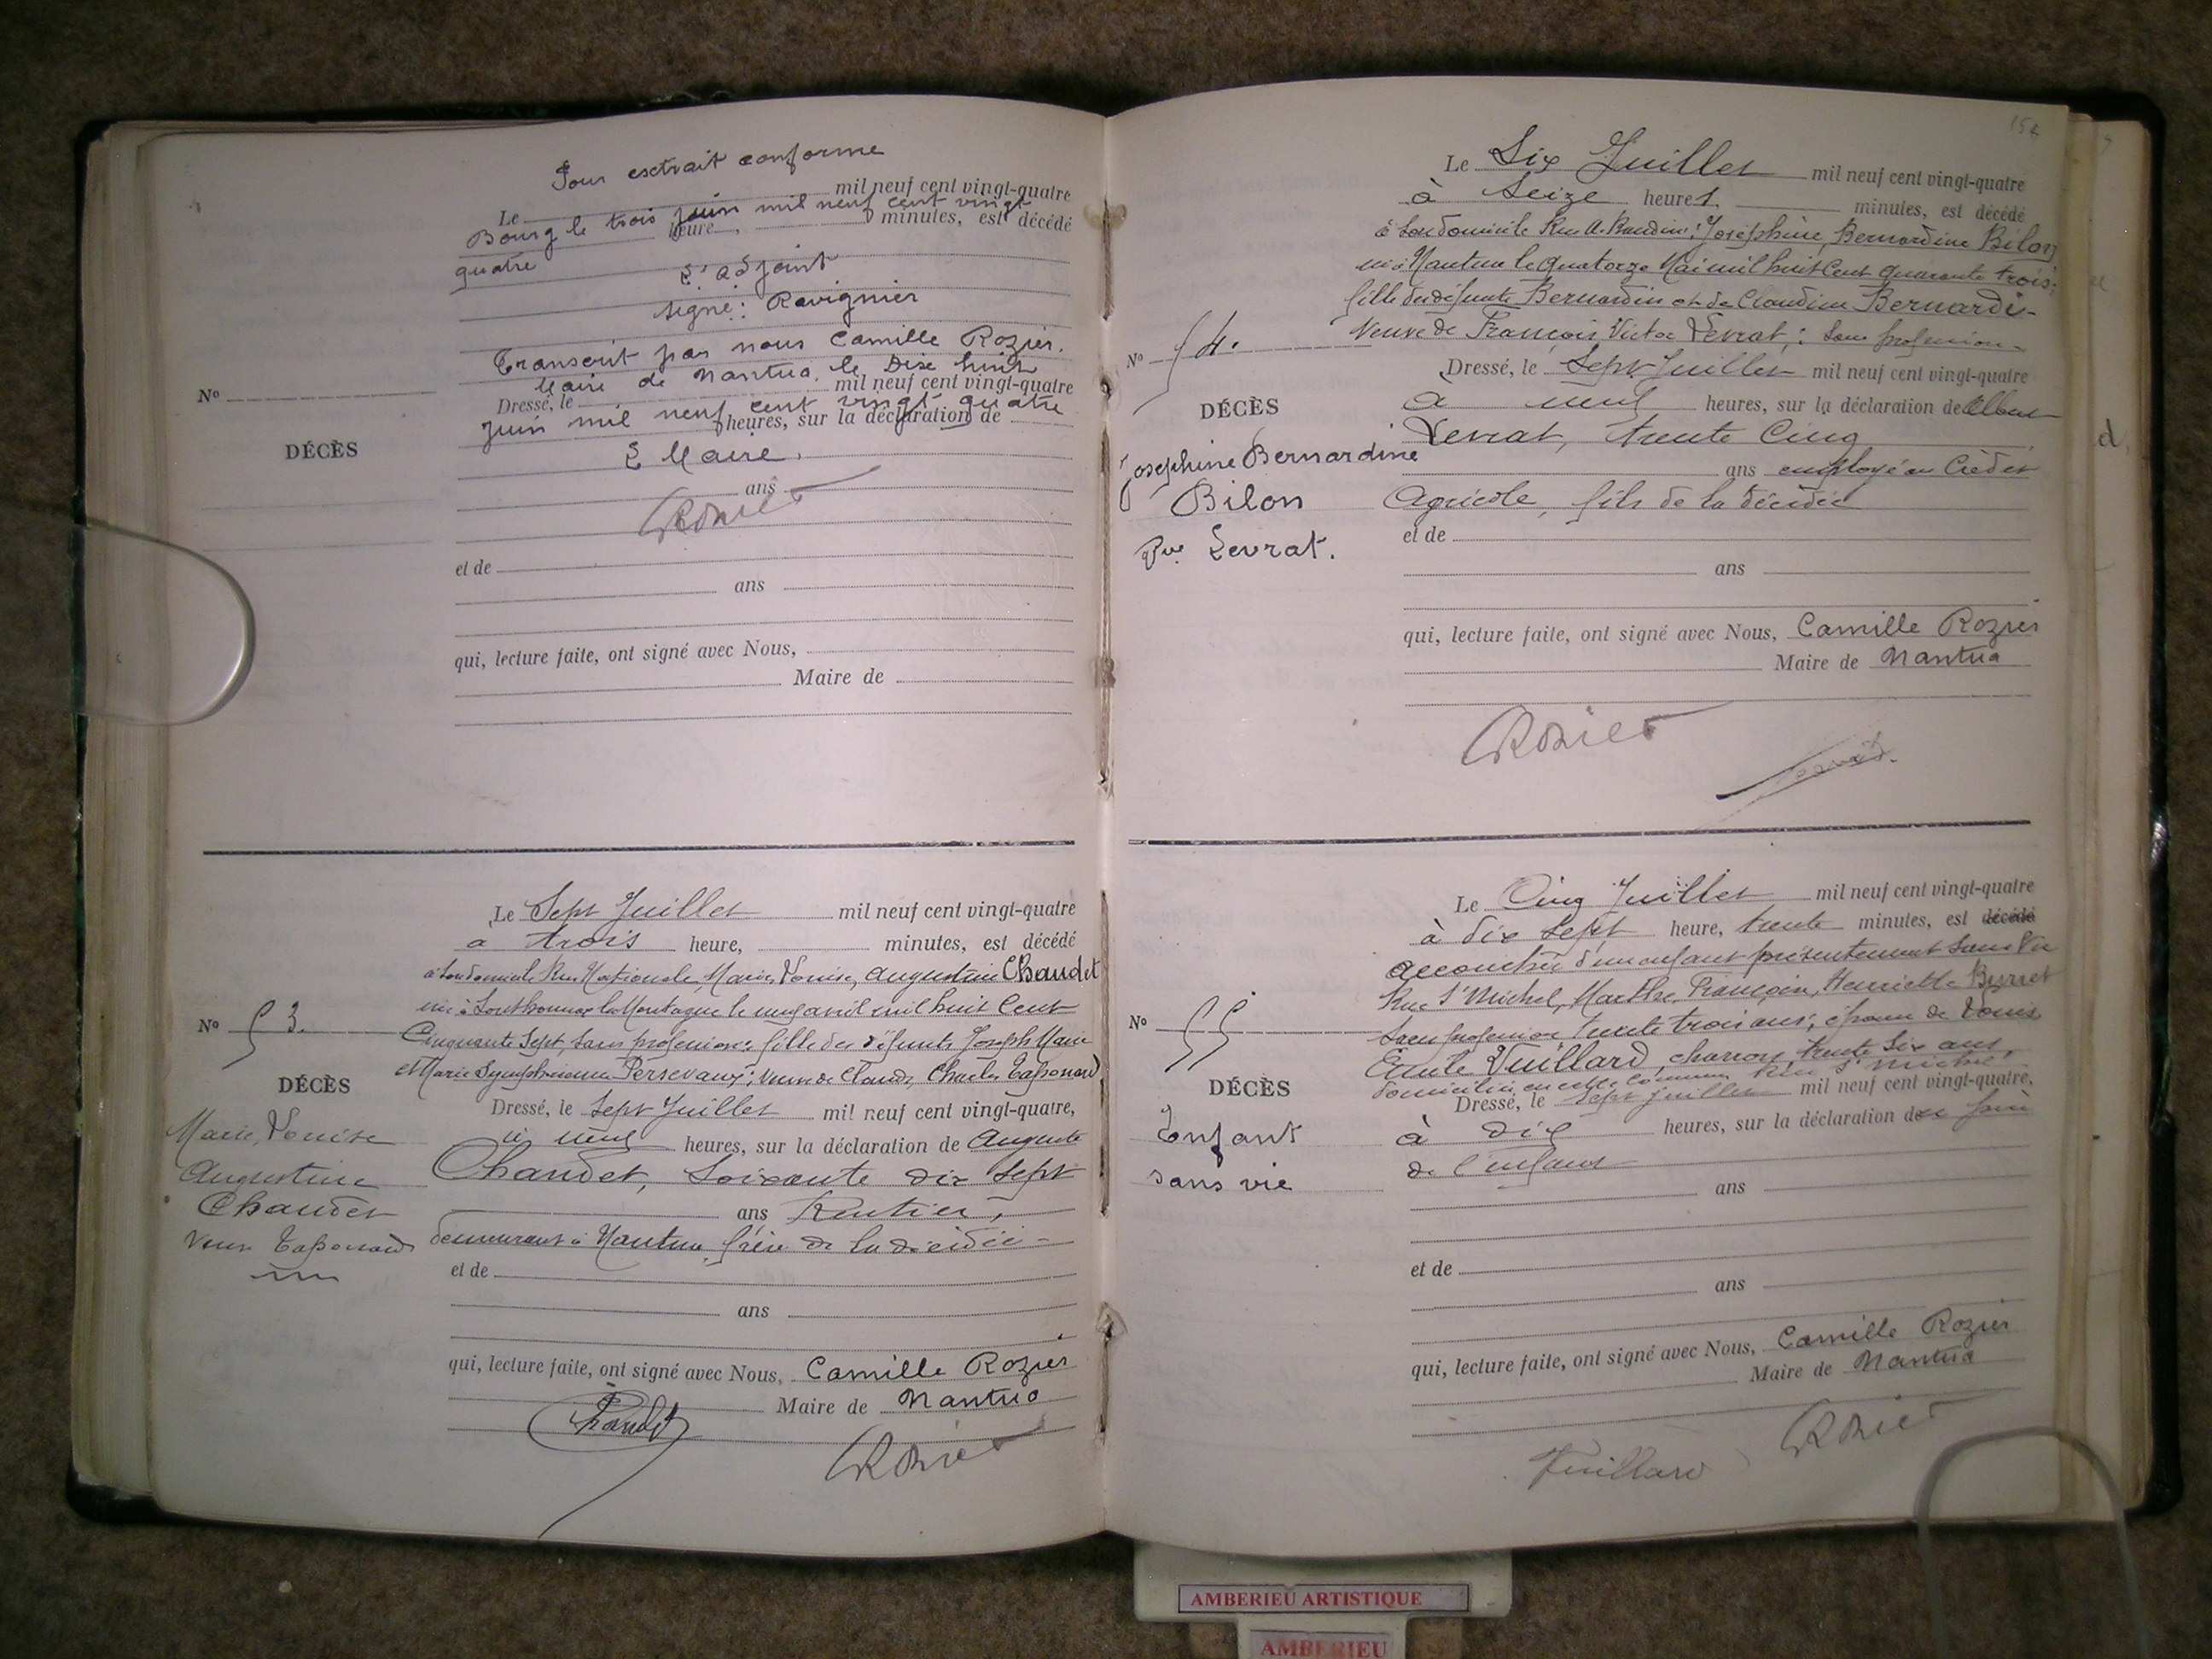 Pour esctrait conforme
Le mil neuf cent vingt-quatre
Bourg le trois juin mil neuf cent vingt
heure, minutes, est décédé
quatre
L'adjoint
signé: Ravignier
Transcrit par nous Camille Rozier,
Maire de Nantua, le Dix huit
Dressé, le mil neuf cent vingt-quatre
juin mil neuf cent vingt quatre
heures, sur la déclaration de
L Maire.
ans
Rozier
et de
ans
qui, lecture faite, ont signé avec Nous,
Maire de
No
DÉCÈS
No 53.
DÉCÈS
Marie, Louise
Augustine
Chaudet
Veuve Taponard
Le Sept Juillet mil neuf cent vingt-quatre
a trois heure, minutes, est décédé
à son domicile Rue Nationale, Marie, Louise, Augustine Chaudet
née à Sonthonnax la Montagne le neuf avril mil huit Cent
Cinquante Sept, sans profession; fille des défunts Joseph Marie
et Marie Symphorienne Persevaux; veuve de Claude Charles Taponard
Dressé, le Sept Juillet mil neuf cent vingt-quatre,
à neuf heures, sur la déclaration de Auguste
Chaudet, Soixante dix sept
ans Rentier,
demeurant à Nantua, frère de la décédée
et de
ans
qui, lecture faite, ont signé avec Nous, Camille Rozier
Maire de Nantua
Chaudet
Rozier
154
No 54.
DÉCÈS
Josephine Bernardine
Bilon
Vve Levrat.
Le Six Juillet mil neuf cent vingt-quatre
à Seize heures, minutes, est décédé
à son domicile Rue A. Baudin; Joséphine, Bernardine Bilon
née à Nantua le quatorze Mai mil huit Cent quarante trois;
fille des défunts Bernardin et de Claudine Bernardi-
Veuve de François Victor Levrat; Sans profession
Dressé, le Sept Juillet mil neuf cent vingt-quatre
à neuf heures, sur la déclaration de Albert
Levrat, trente Cinq
ans employé au Crédit
Agricole, fils de la décédée
et de
ans
qui, lecture faite, ont signé avec Nous, Camille Rozier
Maire de Nantua
Rozier
No 55
DÉCÈS
Enfant
sans vie
Le Cinq Juillet mil neuf cent vingt-quatre
à dix sept heure, trente minutes, est décédé
accouchée d'un enfant présentement sans vie
Rue St Michel, Marthe, Françoise, Henriette
sans profession trente trois ans, épouse de Louis
Emile Vuillard, charron, trente six ans,
domiciliés en cette commune Rue St Michel
Dressé, le Sept juillet mil neuf cent vingt-quatre,
à dix heures, sur la déclaration du père
de l'enfant
ans
et de
ans
qui, lecture faite, ont signé avec Nous, Camille Rozier
Maire de Nantua
Rozier
Vuillard
AMBERIEU ARTISTIQUE
AMBERIEU